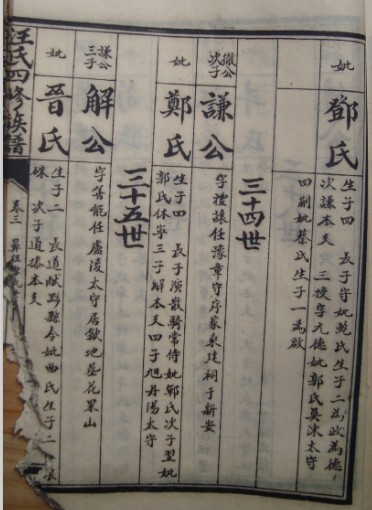 妣
鄧氏
生子四 長子守妣鮑氏生子二為政為德
次謙本支 三授尋元德妣郭氏吳沐太守
四副妣蔡氏生子一為啟
三十四世
徽公次子
謙公
字禮讓任豫章守序家泉建祠于新安
妣
鄭氏
生子四 長子演散騎常侍妣鄭氏次子型妣
郭氏休寧三子解本支四子旭丹陽太守
三十五世
謙公三子
解公
字善能任廬陵太守居歙地葬花果山
妣
晉氏
生子二 長道獻黟縣令妣曲氏生子二
次子道搽本支
汪氏四修族譜
卷三